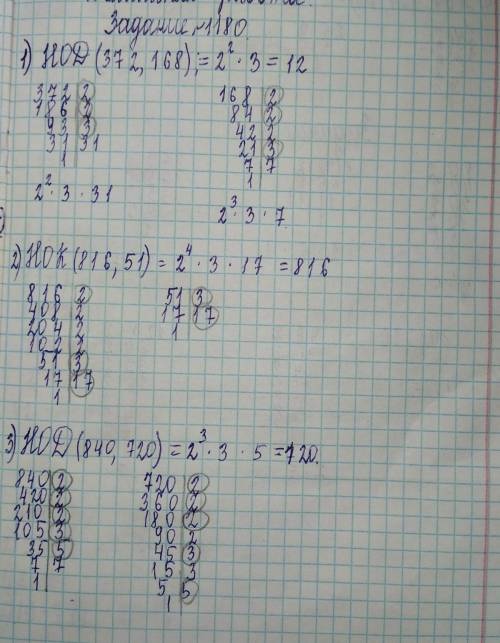 Задание 1180.
1) НОД (372, 168) = 2² · 3 = 12
372 | 2
186 | 2
93 | 3
31 | 31
1
2² · 3 · 31
168 | 2
84 | 2
42 | 2
21 | 3
7 | 7
1
2³ · 3 · 7
2) НОК (816, 51) = 2⁴ · 3 · 17 = 816
816 | 2
408 | 2
204 | 2
102 | 2
51 | 3
17 | 17
1
51 | 3
17 | 17
1
3) НОД (840, 720) = 2³ · 3 · 5 = 120.
840 | 2
420 | 2
210 | 2
105 | 3
35 | 5
7 | 7
1
720 | 2
360 | 2
180 | 2
90 | 2
45 | 3
15 | 3
5 | 5
1